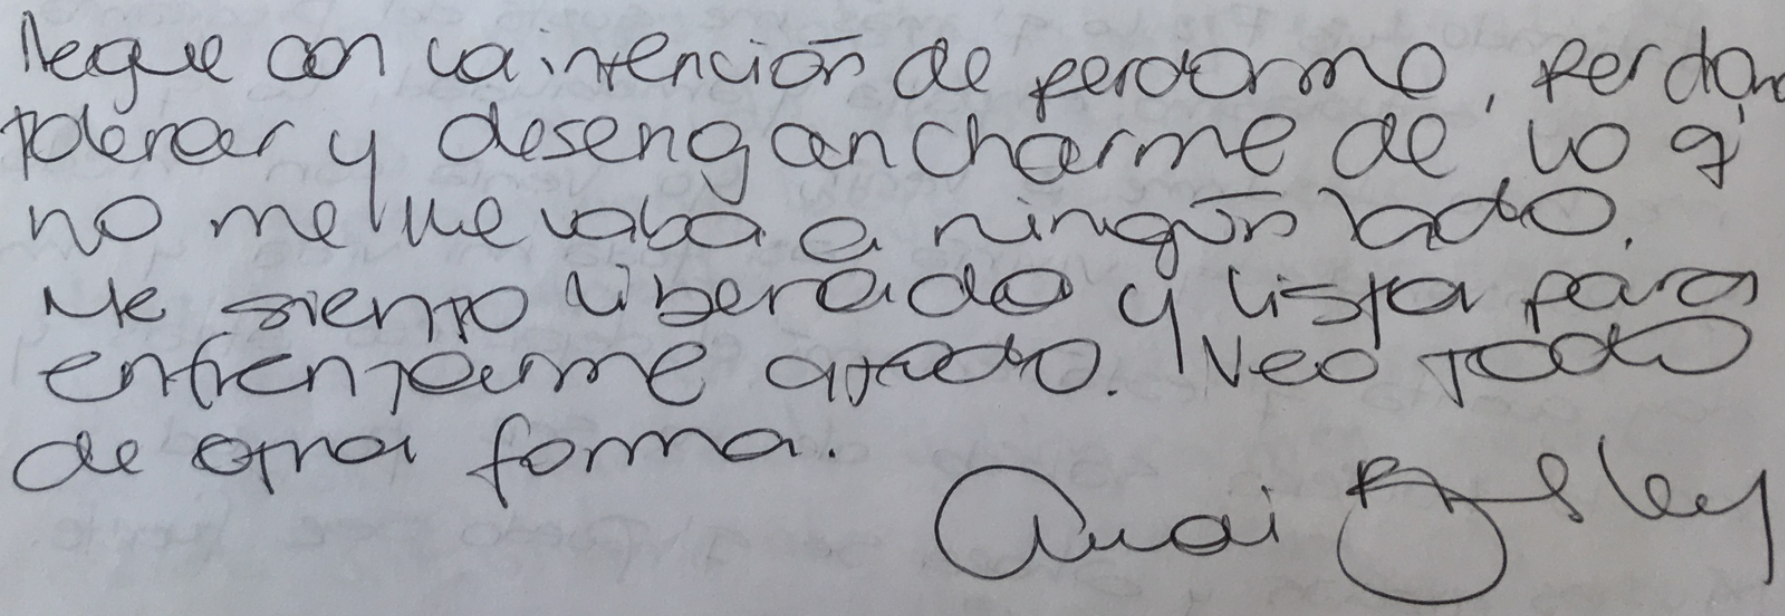 llegue con la intención de perdonarme, perdonar
tolerar y desengancharme de lo q'
no me llevaba a ningún lado.
Me siento liberada y lista para
enfrentarme a todo. Veo todo
de otra forma.